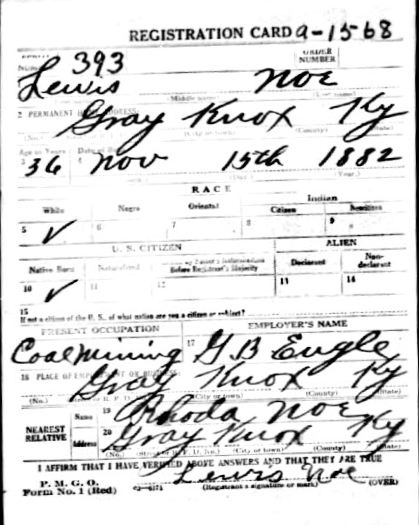 REGISTRATION CARD A-15-68
SERIAL NUMBER 393 ORDER NUMBER
Lewis Noe
(Middle name) (Last name)
2 PERMANENT HOME ADDRESS:
Gray Knox Ky
(No.) (City or town) (County) (State)
Age in Years Date of Birth
36 Nov 15th 1882
3 4 (Day.) (Year.)
RACE
White Negro Oriental Indian
Citizen Noncitizen
5 ✓ 6 7 8 9
U. S. CITIZEN ALIEN
Native Born Naturalized Citizen by Father's Naturalization Before Registrant's Majority Declarant Non-declarant
10 ✓ 11 12 13 14
15
If not a citizen of the U. S., of what nation are you a citizen or subject?
PRESENT OCCUPATION EMPLOYER'S NAME
Coal Mining 17 G B Engle
18 PLACE OF EMPLOYMENT OR BUSINESS:
Gray Knox Ky
(No.) (City or town) (County) (State)
NEAREST RELATIVE Name 19 Rhoda Noe
Address 20 Gray Knox Ky
(No.) (Street or R. F. D. No.) (City or town) (County) (State)
I AFFIRM THAT I HAVE VERIFIED ABOVE ANSWERS AND THAT THEY ARE TRUE
P. M. G. O.
Form No. 1 (Red) Lewis Noe
(Registrant's signature or mark) (OVER)